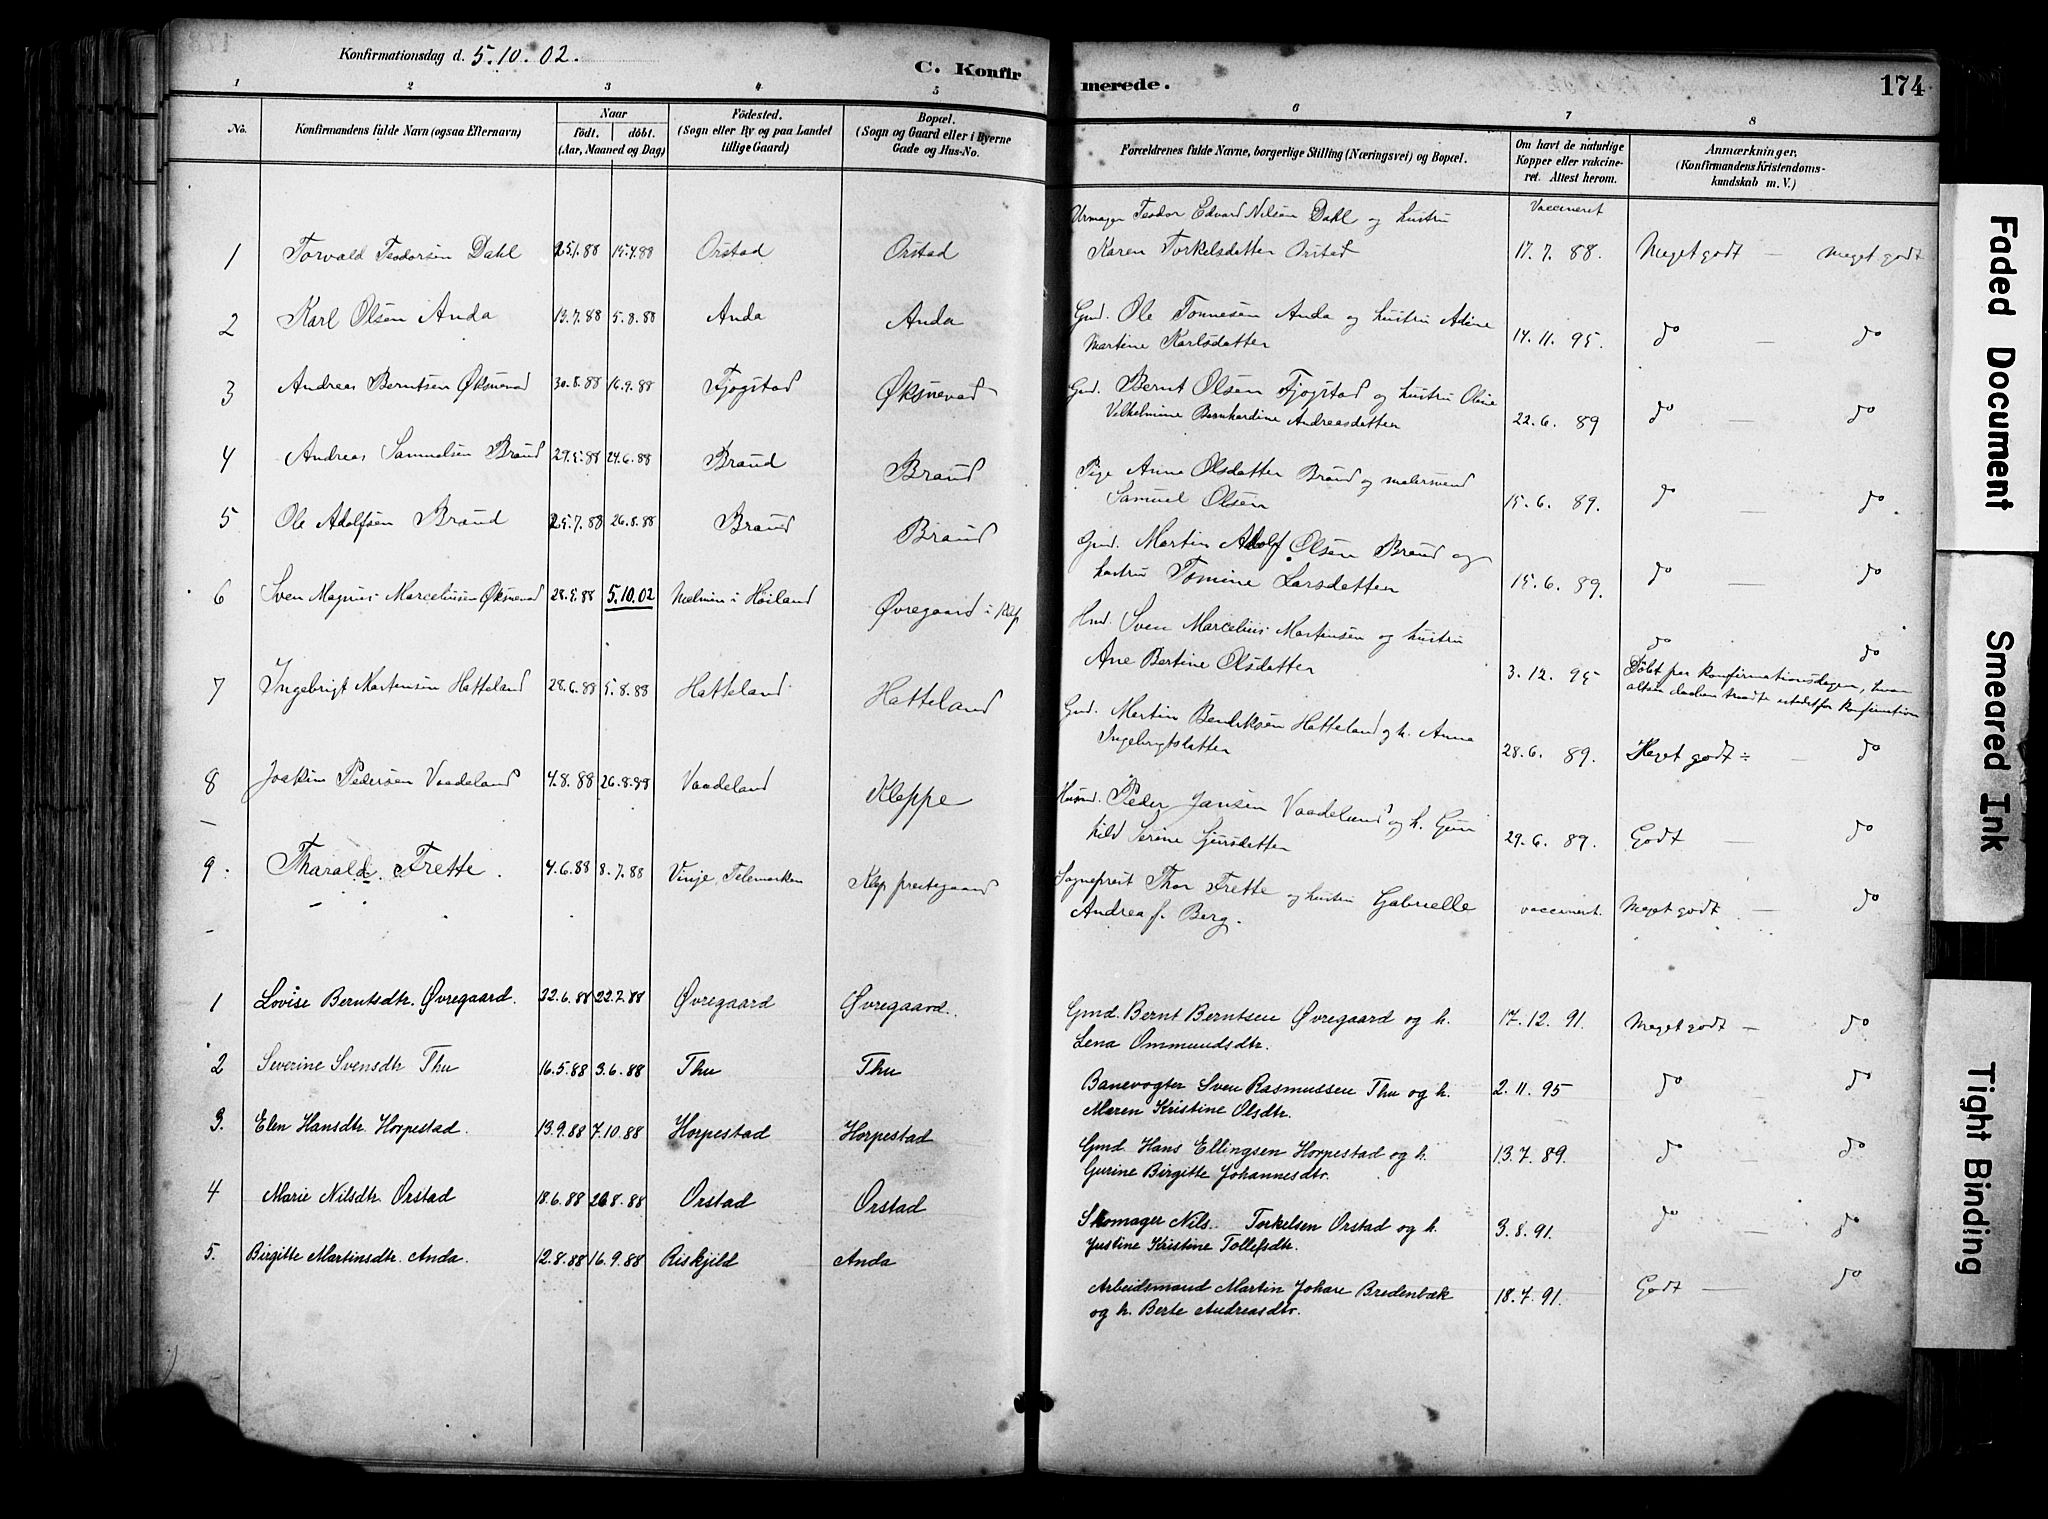 Konfirmationsdag d. 5.10.02.
C. Konfirmerede.
174
1 2 3 4 5 6 7 8
No.
Konfirmandens fulde Navn (ogsaa Efternavn)
Naar
födt. döbt.
(Aar, Maaned og Dag)
Födested.
(Sogn eller By og paa Landet
tillige Gaard)
Bopæl.
(Sogn og Gaard eller i Byerne
Gade og Hus-No.
Forældrenes fulde Navne, borgerlige Stilling (Næringsvei) og Bopæl.
Om havt de naturlige
Kopper eller vakcine-
ret. Attest herom.
Anmærkninger.
(Konfirmandens Kristendoms-
kundskab m. V.)
Urmager Teodor Edvard Nilsen Dahl og hustru Vaccineret
1 Torvald Teodorsen Dahl 25.1.88 15.4.88 Orstad Orstad Karen Torkelsdatter Orstad 17.7.88. Meget godt — Meget godt
2 Karl Olsen Anda 13.7.88 5.8.88 Anda Anda Gmd. Ole Tonnesen Anda og hustru Adine
Martine Karlsdatter 14.11.95. do — do
3 Andreas Berntsen Øksnevad 30.8.88 16.9.88 Fjogstad Øksnevad Gmd. Bernt Olsen Fjogstad og hustru Oline
Vilhelmine Bernhardine Andreasdatter 22.6.89 do — do
4 Andreas Samuelsen Braud 29.5.88 24.6.88 Braud Braud Pige Anna Olsdatter Braud og malersvend
Samuel Olsen 15.6.89. do — do.
5 Ole Adolfsen Braud 25.7.88 26.8.88 Braud Braud Gmd. Martin Adolf Olsen Braud og
hustru Tomine Larsdatter 15.6.89. do — do
6 Sven Magnus Marceliusen Øksnevad 28.5.88 5.10.02 i Høiland Øvregaard i Klep Hmd. Sven Marcelius Martinsen og hustru
Ane Bertine Olsdatter 3.12.95 do do
Döbt paa Konfirmationsdagen, hvor
altsaa daaben traadte istedetfor Konfirmation
7 Ingebrigt Martinsen Hatteland 28.6.88 5.8.88 Hatteland Hatteland Gmd. Martin Bendiksen Hatteland og h. Anna
Ingebrigtsdatter 28.6.89. Meget godt ÷ — do
8 Joakim Pedersen Vaadeland 4.8.88 26.8.88 Vaadeland Kleppe Husmd. Peder Jansen Vaadeland og h. Gun
hild Serine Sjursdatter 29.6.89. Godt — do
9. Tharald Frette. 4.6.88 8.7.88 Vinje, Telemarken Klep prestegaard Sogneprest Thor Frette og hustru Gabrielle
Andrea f. Berg. vaccineret. Meget godt — do
1 Lovise Berntsdtr. Øvregaard. 22.6.88 22.7.88 Øvregaard Øvregaard. Gmd. Bernt Berntsen Øvregaard og h.
Lena Ommundsdtr. 17.12.91. Meget godt — do
2 Severine Svensdtr Thu 16.5.88 3.6.88 Thu Thu Banevogter Sven Rasmussen Thu og h.
Maren Kristine Olsdtr. 2.11.95 do — do
3. Elen Hansdtr. Horpestad. 13.9.88 7.10.88 Horpestad Horpestad Gmd. Hans Ellingsen Horpestad og h.
Gurine Birgitte Johannesdtr. 13.7.89. do — do
4 Marie Nilsdtr. Orstad 18.6.88 26.8.88 Orstad Orstad Skomager Nils Torkelsen Orstad og h.
Justine Kristine Tollefsdtr. 3.8.91. do — do
5. Birgitte Martinsdtr. Anda. 12.8.88 16.9.88 Riskjild Anda Arbeidsmand Martin Johare Bredenbæk
og h. Berte Andreasdtr. 18.7.91. Godt — do
Faded Document
Smeared Ink
Tight Binding